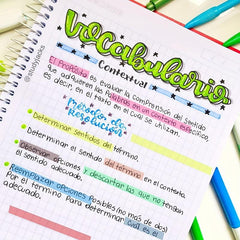 Vocabulario
Contextual
@studyjadss
El Propósito es evaluar la comprensión del sentido
que adquieren las Palabras en un contexto específico,
es decir, en el texto en el cual se utilizan.
Método de
Resolución
Determinar sentidos del término.
Determinar el sentido del término en el contexto.
Observar opciones y descartar las que no tengan
el sentido adecuado.
Reemplazar opciones Posibles (no mas de dos)
Por el término para determinar cuál es el
adecuado.